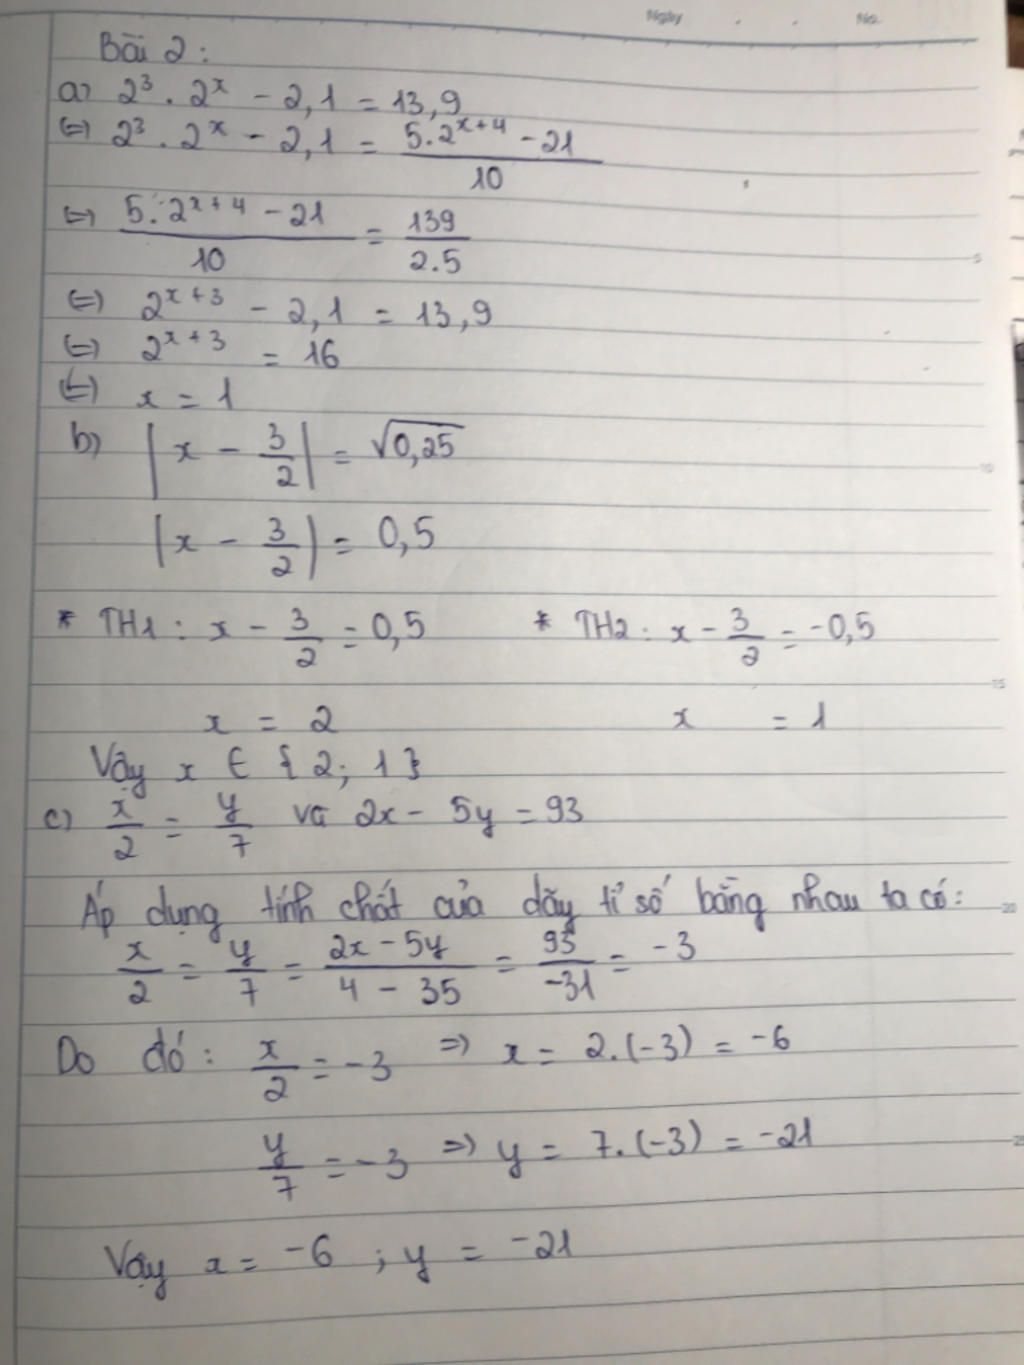 Ngày . . No.
Bài 2 :
a) 2³ . 2ˣ - 2,1 = 13,9
(=) 2³ . 2ˣ - 2,1 = (5.2ˣ⁺⁴ - 21)/10
(=) (5.2ˣ⁺⁴ - 21)/10 = 139/2.5
(=) 2ˣ⁺³ - 2,1 = 13,9
(=) 2ˣ⁺³ = 16
(=) x = 1
b) |x - 3/2| = √0,25
|x - 3/2| = 0,5
* TH1 : x - 3/2 = 0,5 * TH2 : x - 3/2 = -0,5
x = 2 x = 1
Vậy x ∈ {2; 1}
c) x/2 = y/7 và 2x - 5y = 93
Áp dụng tính chất của dãy tỉ số bằng nhau ta có:
x/2 = y/7 = (2x - 5y)/(4 - 35) = 93/-31 = -3
Do đó : x/2 = -3 => x = 2.(-3) = -6
y/7 = -3 => y = 7.(-3) = -21
Vậy x = -6 ; y = -21
5
10
15
20
25